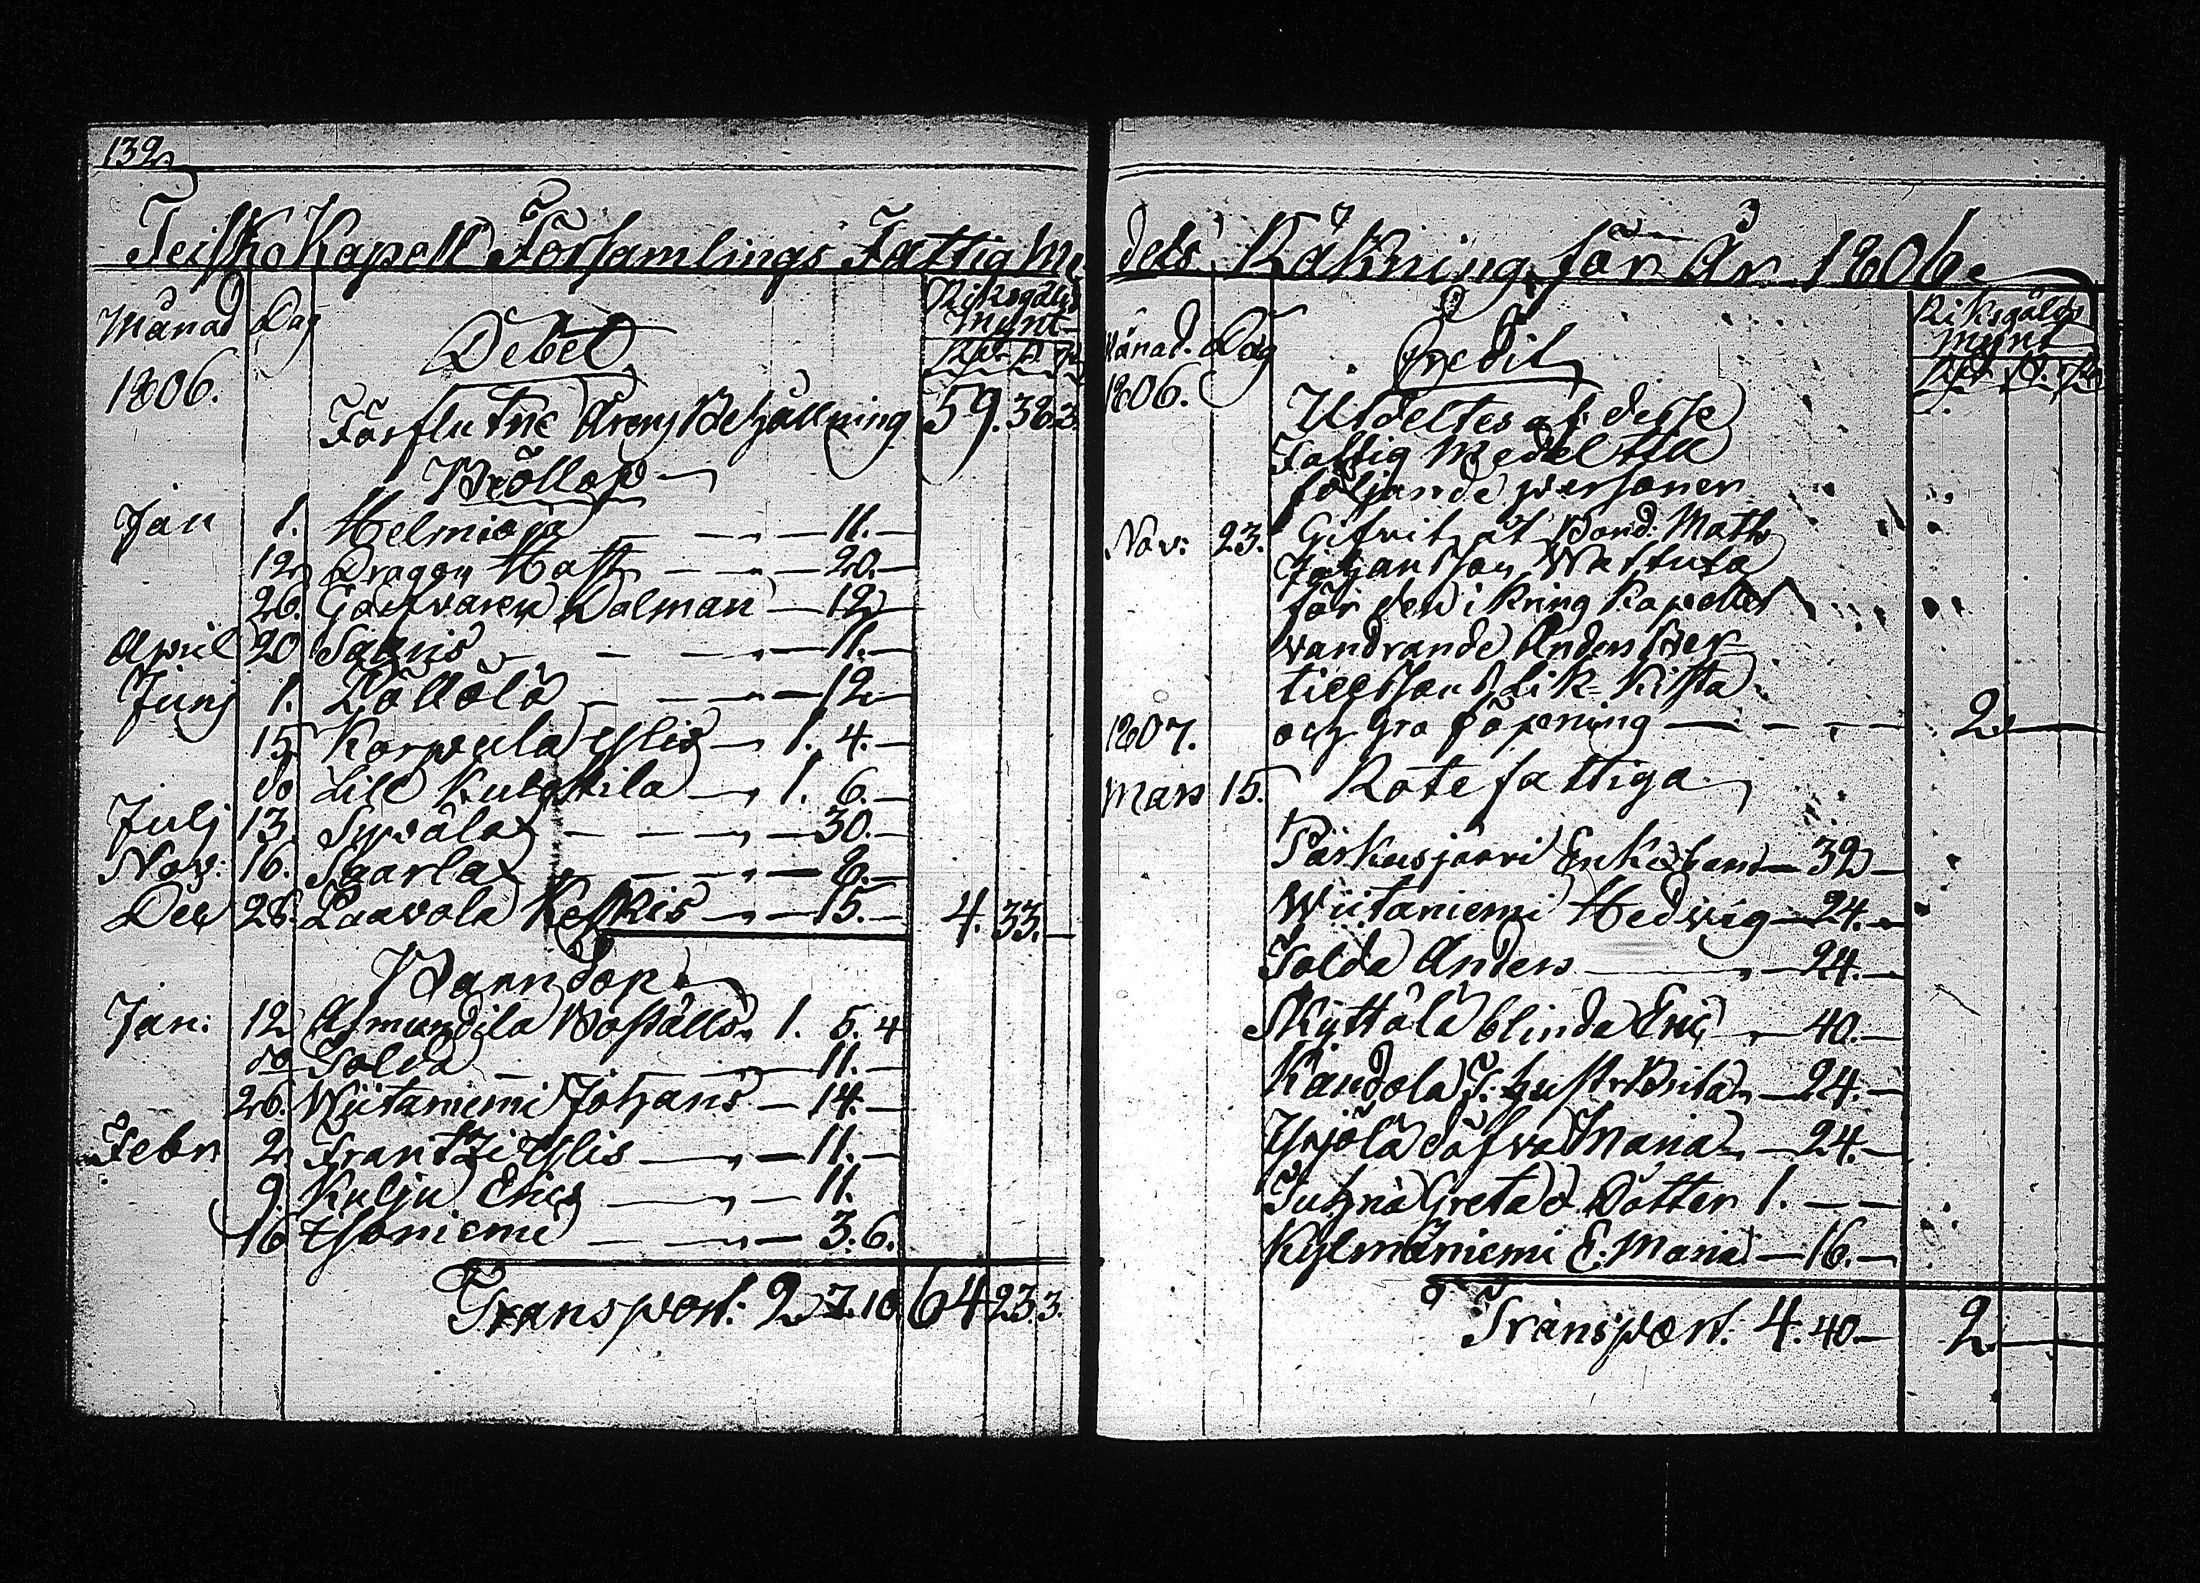 132
Teisko Kapell Församlings Fattig Me
Månad Dag Debet Riksgälds
Mynt
1806.
Förflutne Årens Behållning 59. 38. 3
Bröllop
Jan 1. Helmioja - - 11. -
12 Dragon Hast - - 20. -
26. Gåsvaren Dolman - 12 -
April 20 Sahnis - - 11. -
Junj 1. Löllölä - - 12 -
15 Korpula Yslis - 1. 4. -
do Lill Kulgttila - 1. 6. -
Julj 13. Sypälax - - 30. -
Nov: 16. Paarlax - - 8. -
Dec 28. Paavola Keskis - 15. - 4. 33. -
Barndop
Jan: 12 Asmundila Boställs 1. 5. 4
do Tolda - - 11. -
26. Wiitaniemi Johans - 14. -
Febr 2 Frantzi Yslis - 11. -
9. Kulju Erics - 11.
16 Isoniemi - - 3. 6.
Transport: 2. 7. 10. 64 23. 3.
dels Räkning för År 1806.
Månad. Dag Credit Riksgälds
Mynt
1806.
Utdeltes af desse
Fattig Medel till
följande personer
Nov: 23. Gifvit åt Bond: Matts
Johansson Wattula
för den i kring Kapellet
vandrande Anders Ber-
tillssons Lik-Kista
och Gra föpening - - 2 -
1807.
Mars 15. Rote fattiga
Paskusjärvi Enk - 32 -
Wiitaniemi Hedvig - 24. -
Tolda Anders - 24. -
Skyttälä blinda Eric - 40. -
Kandola J. hustr Brita - 24. -
Yrjölä döfva Maria - 24. -
Juhna Greta o. Dotter 1. - -
Kylmäniemi E. Maria - 16. -
Transport: 4. 40. - 2 -